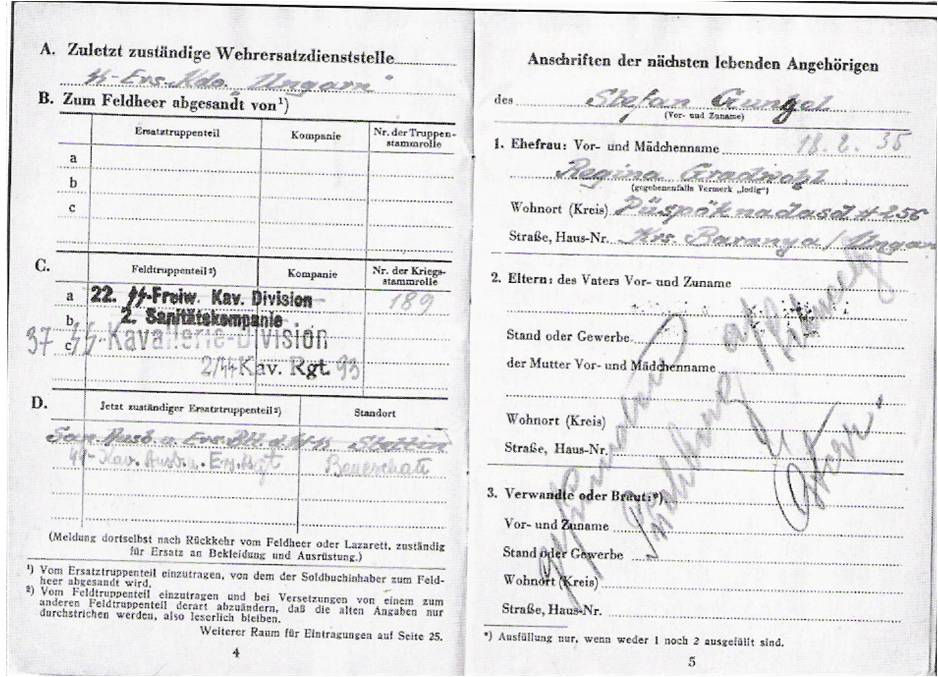 A. Zuletzt zuständige Wehrersatzdienststelle
ϟϟ-Ers.Kdo. "Ungarn"
B. Zum Feldheer abgesandt von¹)
Ersatztruppenteil Kompanie Nr. der Truppen-
stammrolle
a
b
c
C. Feldtruppenteil²) Kompanie Nr. der Kriegs-
stammrolle
a 22. ϟϟ-Freiw. Kav. Division 189
b 2. Sanitätskompanie
37 c ϟϟ-Kavallerie-Division
2/ϟϟ Kav. Rgt. 93
D. Jetzt zuständiger Ersatztruppenteil²) Standort
San. Ausb. u. Ers. Btl. d. ϟϟ Stettin
ϟϟ-Kav. Ausb. u. Ers. Rgt
(Meldung dortselbst nach Rückkehr vom Feldheer oder Lazarett, zuständig
für Ersatz an Bekleidung und Ausrüstung.)
¹) Vom Ersatztruppenteil einzutragen, von dem der Soldbuchinhaber zum Feld-
heer abgesandt wird.
²) Vom Feldtruppenteil einzutragen und bei Versetzungen von einem zum
anderen Feldtruppenteil derart abzuändern, daß die alten Angaben nur
durchstrichen werden, also leserlich bleiben.
Weiterer Raum für Eintragungen auf Seite 25.
4
Anschriften der nächsten lebenden Angehörigen
des Stefan Gungel
(Vor- und Zuname)
1. Ehefrau: Vor- und Mädchenname 18. 2. 35
Regina Gradwohl
(gegebenenfalls Vermerk „ledig")
Wohnort (Kreis) Püspöknadasd # 256
Straße, Haus-Nr. Krs. Baranya / Ungarn
2. Eltern: des Vaters Vor- und Zuname
Stand oder Gewerbe
der Mutter Vor- und Mädchenname
Wohnort (Kreis)
Straße, Haus-Nr.
3. Verwandte oder Braut:*)
Vor- und Zuname
Stand oder Gewerbe
Wohnort (Kreis)
Straße, Haus-Nr.
*) Ausfüllung nur, wenn weder 1 noch 2 ausgefüllt sind.
5